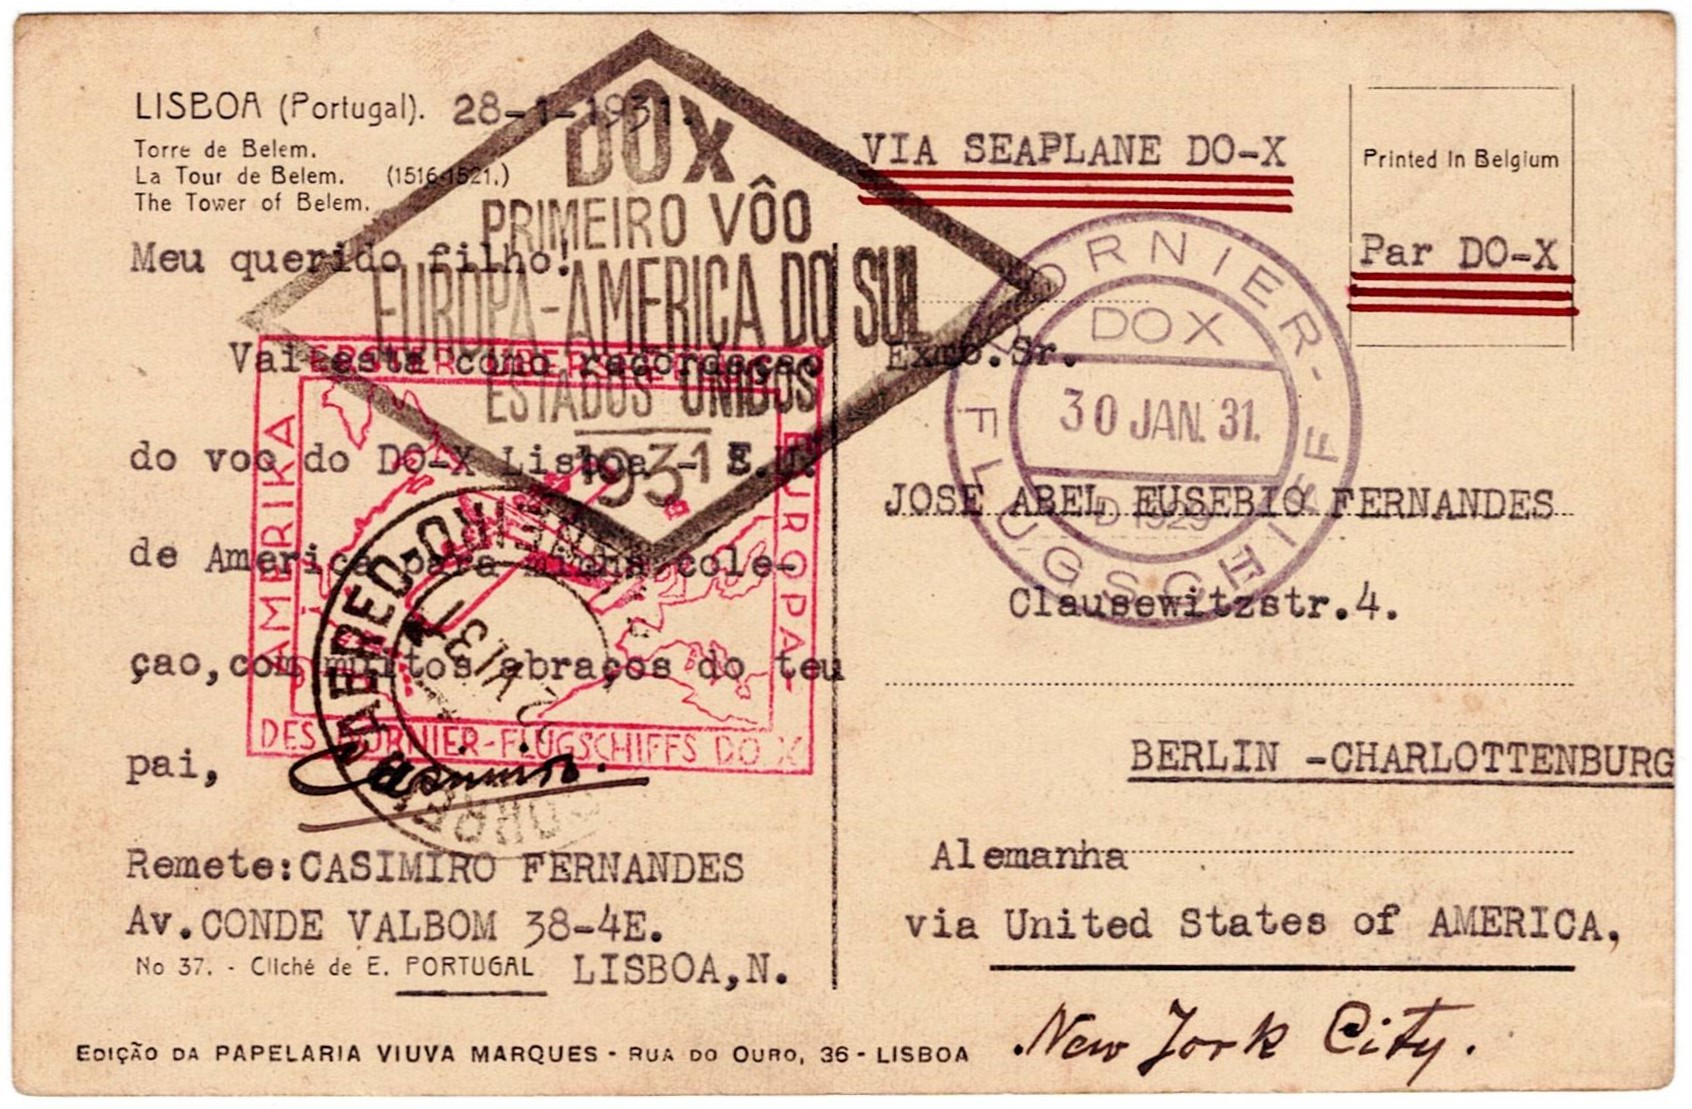 LISBOA (Portugal). 28-1-1931.
Torre de Belem.
La Tour de Belem. (1516-1521.)
The Tower of Belem.
Meu querido filho!
Vai esta como recordaçao
do voo do DO-X Lisboa - E.U.
de America para minha cole-
çao, com muitos abraços do teu
pai,
Casimiro.
Remete: CASIMIRO FERNANDES
Av. CONDE VALBOM 38-4E.
No 37. - Cliché de E. PORTUGAL LISBOA, N.
EDIÇÃO DA PAPELARIA VIUVA MARQUES - RUA DO OURO, 36 - LISBOA
DOX
PRIMEIRO VÔO
EUROPA-AMERICA DO SUL
ESTADOS UNIDOS
1931
AMERIKA
EUROPA-
DES DORNIER-FLUGSCHIFFS DO X
AEREO
VIA SEAPLANE DO-X
Printed in Belgium
Par DO-X
DORNIER-
FLUGSCHIFF
DOX
30 JAN. 31.
D 1929
Exmo. Sr.
JOSE ABEL EUSEBIO FERNANDES
Clausewitzstr. 4.
BERLIN -CHARLOTTENBURG
Alemanha
via United States of AMERICA,
New York City.